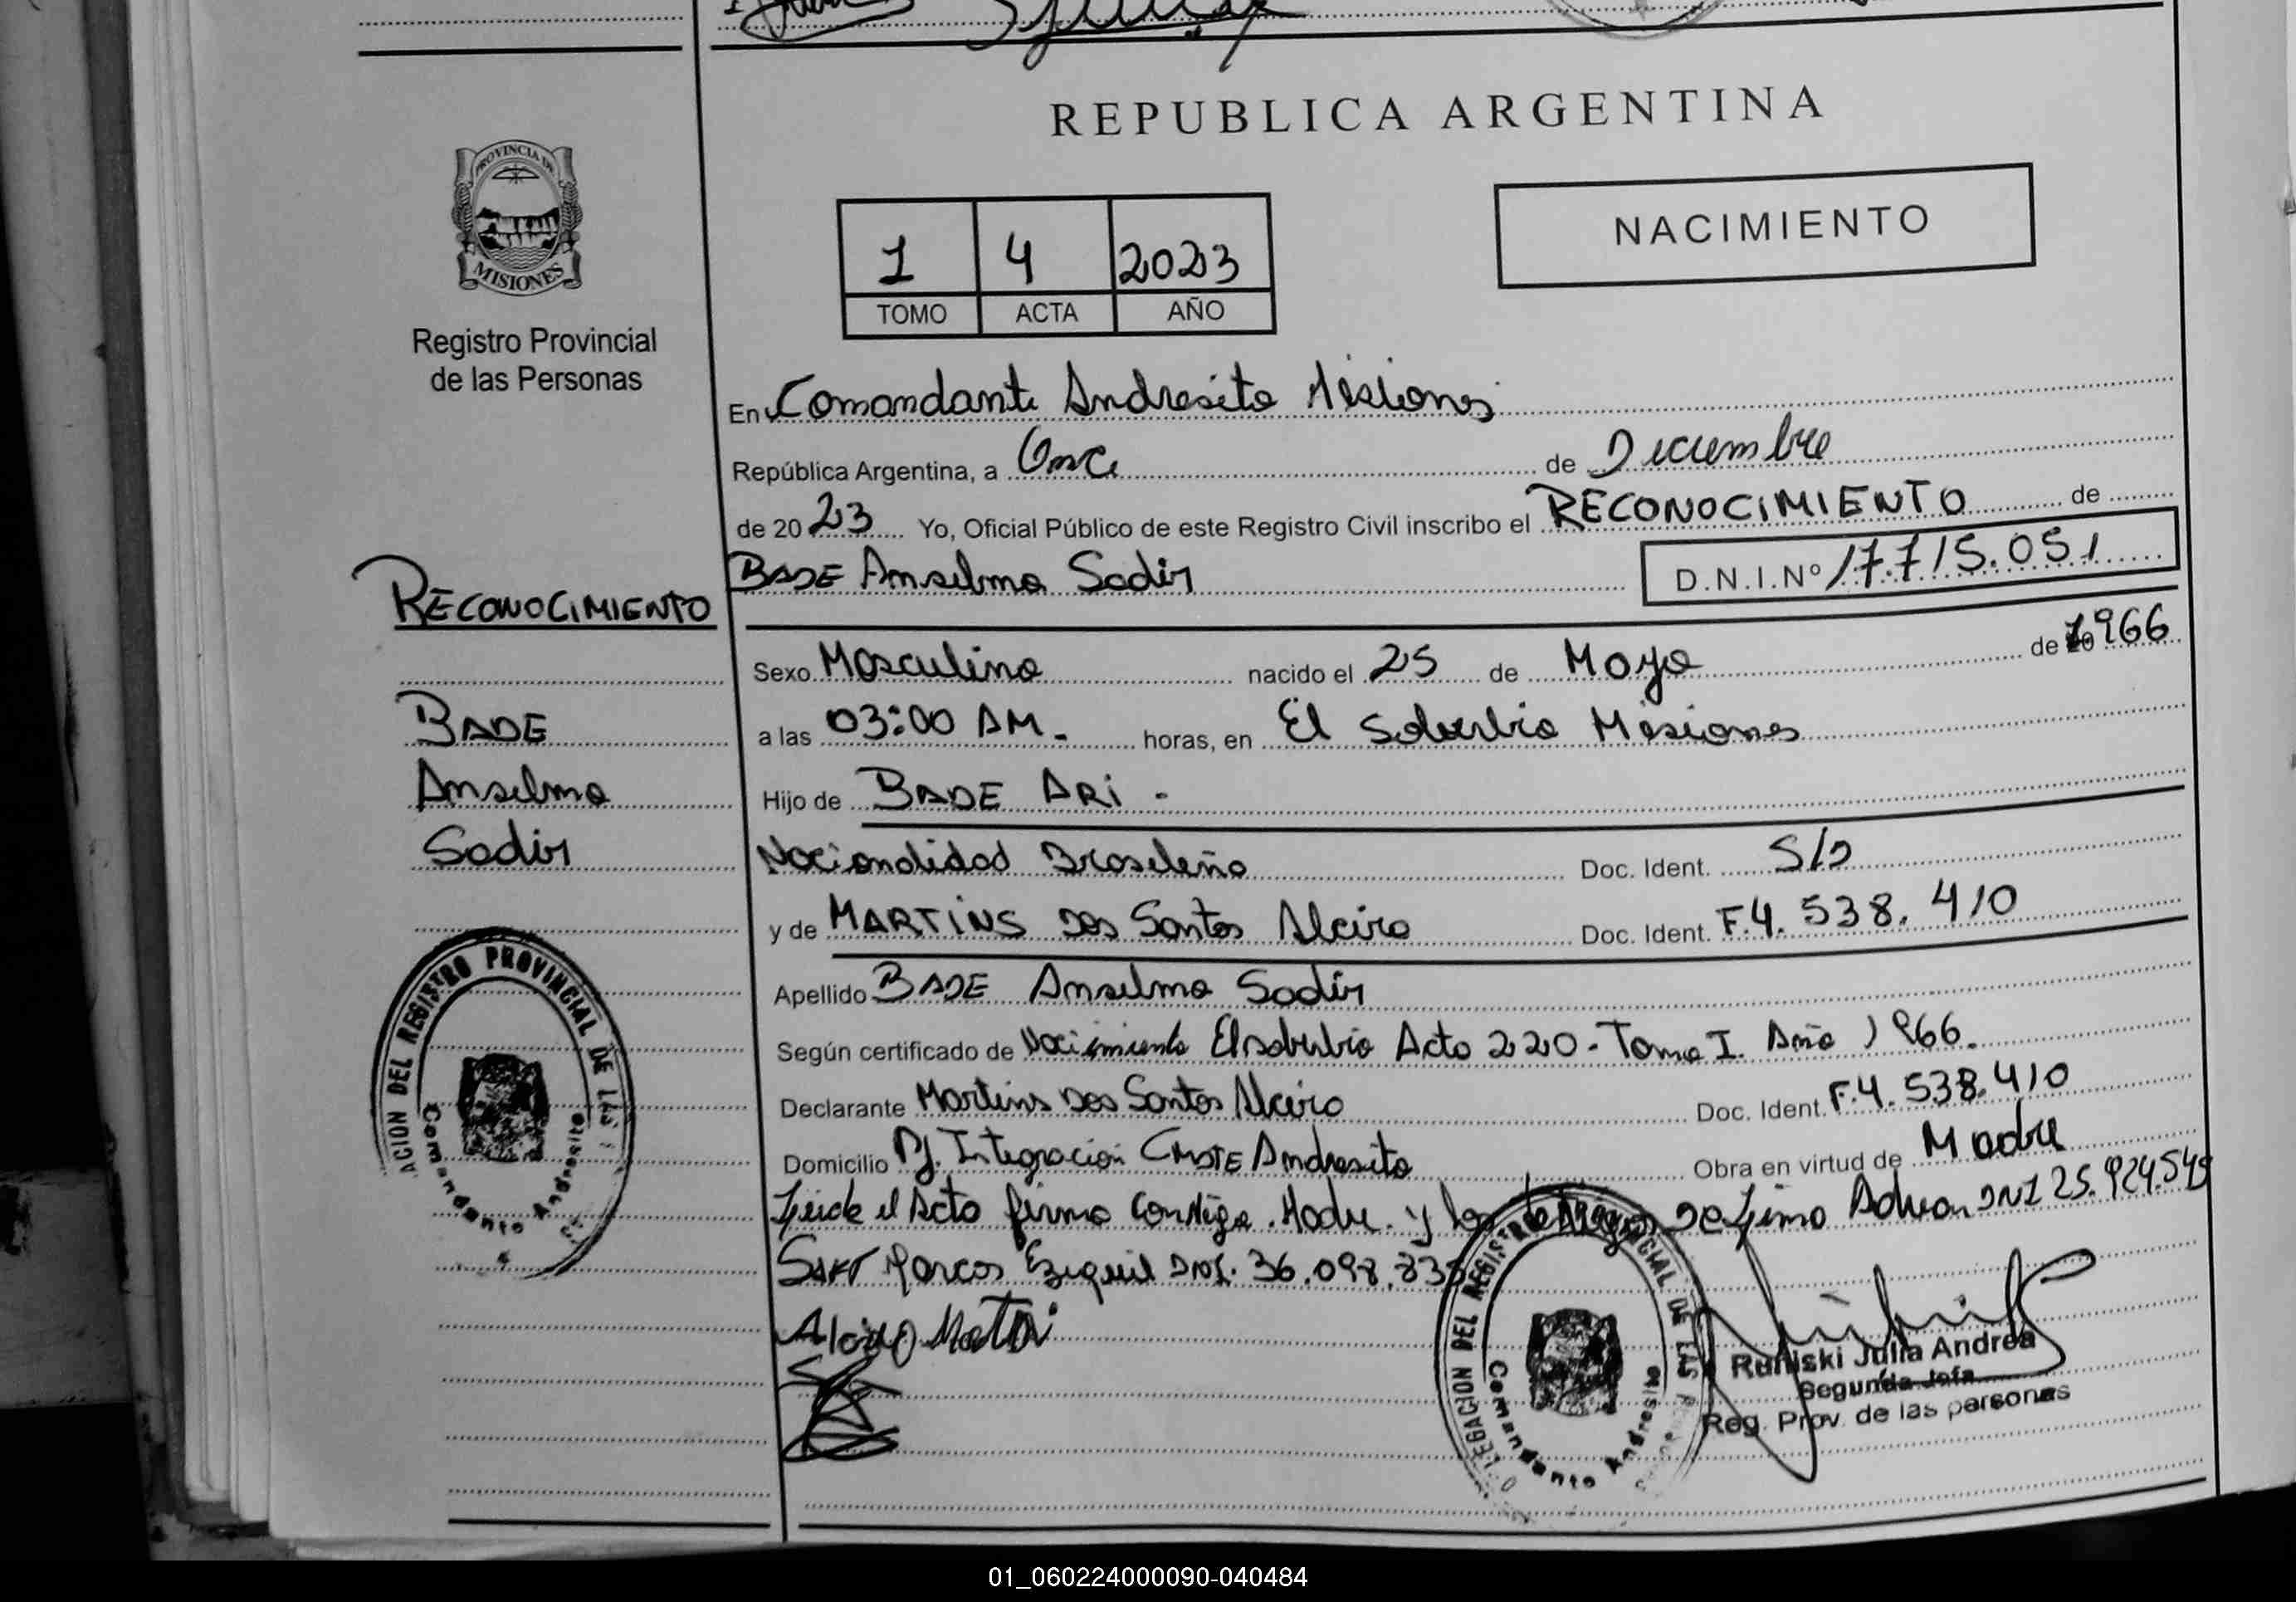 REPUBLICA ARGENTINA
PROVINCIA DE
MISIONES
Registro Provincial
de las Personas
NACIMIENTO
1 4 2023
TOMO ACTA AÑO
En Comandante Andresito Misiones
República Argentina, a Once de Diciembre
de 2023 Yo, Oficial Público de este Registro Civil inscribo el RECONOCIMIENTO de
BADE Anselmo Sadir D.N.I.Nº 17.715.051
RECONOCIMIENTO
BADE
Anselmo
Sadir
Sexo Masculino nacido el 25 de Mayo de 1966
a las 03:00 AM. horas, en El Soberbio Misiones
Hijo de BADE ARi -
Nacionalidad Brasileño Doc. Ident. S/D
y de MARTiNS Dos Santos Alcira Doc. Ident. F.4.538.410
Apellido BADE Anselmo Sadir
Según certificado de Nacimiento El soberbio Acta 220 - Tomo I. Año 1966.
Declarante Martins Dos Santos Alcira Doc. Ident. F.4.538.410
Domicilio Pj. Integración CMDTE Andresito Obra en virtud de Madre
Leida el Acta firma conmigo. Madre. y los testigos Adrian DNI 25.924.549
Marcos Ezequiel DNI. 36.098.835
DELEGACION DEL REGISTRO PROVINCIAL DE LAS
Comandante Andresito
Runiski Julia Andrea
Segunda Jefa
Reg. Prov. de las personas
ACION DEL REGISTRO PROVINCIAL DE LAS
Comandante Andresito
01_060224000090-040484